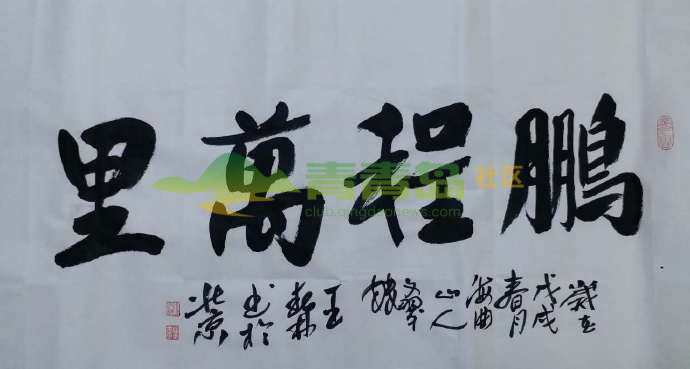 鹏程萬里
歲在
戊戌
春月
海曲
山人
王
森林
书於
北京
青青岛社区
club.qingdaonews.com